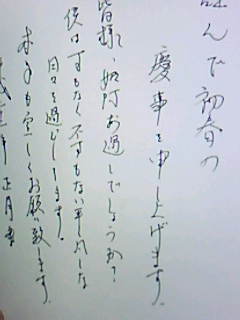 謹んで初春の
慶事を申し上げます。
皆様、如何お過しでしょうか?
僕は可もなく不可もない平凡な
日々を過ごしてます。
本年も宜しくお願い致します。
年 正月